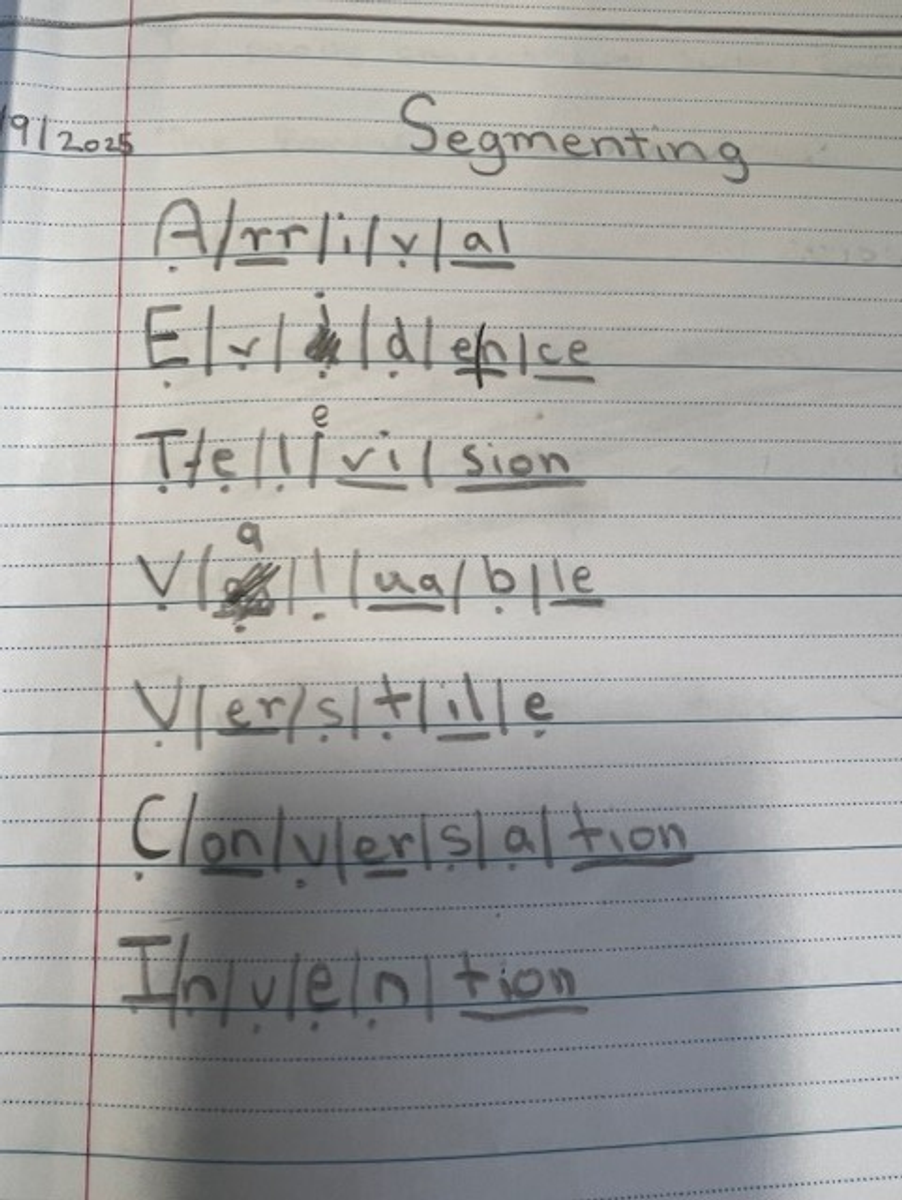 9/2025
Segmenting
A/rr/i/v/al
E/v/i/d/e/n/ce
T/e/l/e/vi/sion
V/a/l/ua/b/le
V/er/s/t/il/e
C/on/v/er/s/a/tion
I/n/v/e/n/tion